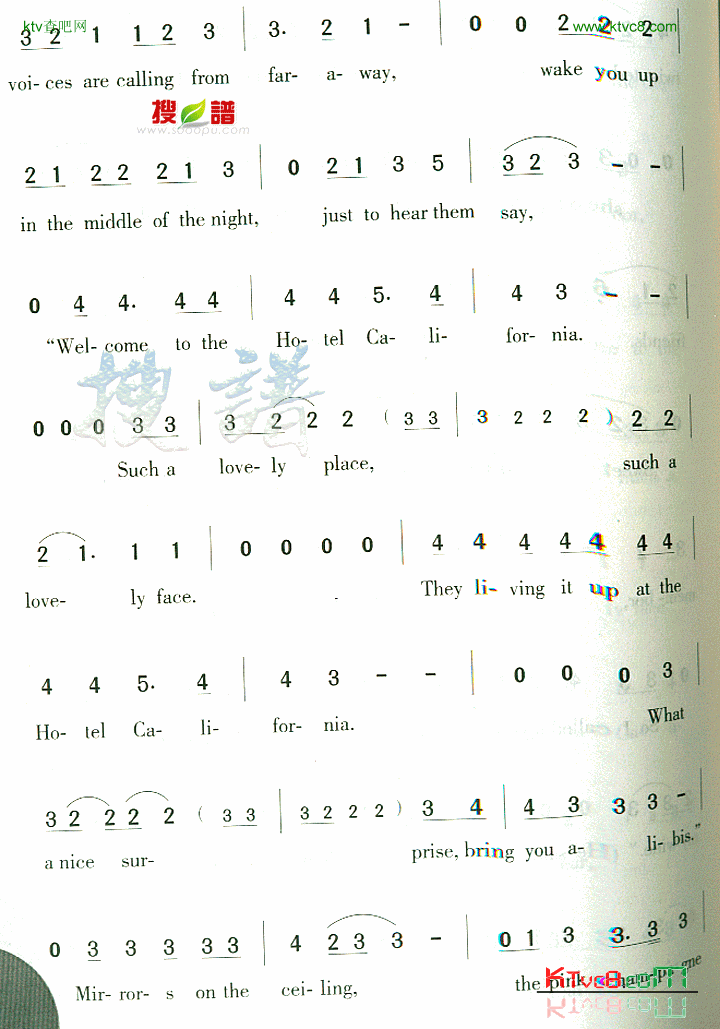 ktv查吧网 www.ktvc8.com
3 2 1 1 2 3 | 3. 2 1 – | 0 0 2 2 2
voi- ces are calling from far- a- way, wake you up
搜谱
www.sooopu.com
2 1 2 2 2 1 3 | 0 2 1 3 5 | 3 2 3 – – |
in the middle of the night, just to hear them say,
0 4 4. 4 4 | 4 4 5. 4 | 4 3 – – |
“Wel- come to the Ho- tel Ca- li- for- nia.
搜譜
0 0 0 3 3 | 3 2 2 2 ( 3 3 | 3 2 2 2 ) 2 2 |
Such a love- ly place, such a
2 1. 1 1 | 0 0 0 0 | 4 4 4 4 4 4 4 |
love- ly face. They li- ving it up at the
4 4 5. 4 | 4 3 – – | 0 0 0 3 |
Ho- tel Ca- li- for- nia. What
3 2 2 2 2 ( 3 3 | 3 2 2 2 ) 3 4 | 4 3 3 3 – |
a nice sur- prise, bring you a- li- bis.”
0 3 3 3 3 3 | 4 2 3 3 – | 0 1 3 3. 3 3
Mir- ror- s on the cei- ling, the pink
KTvc8.com